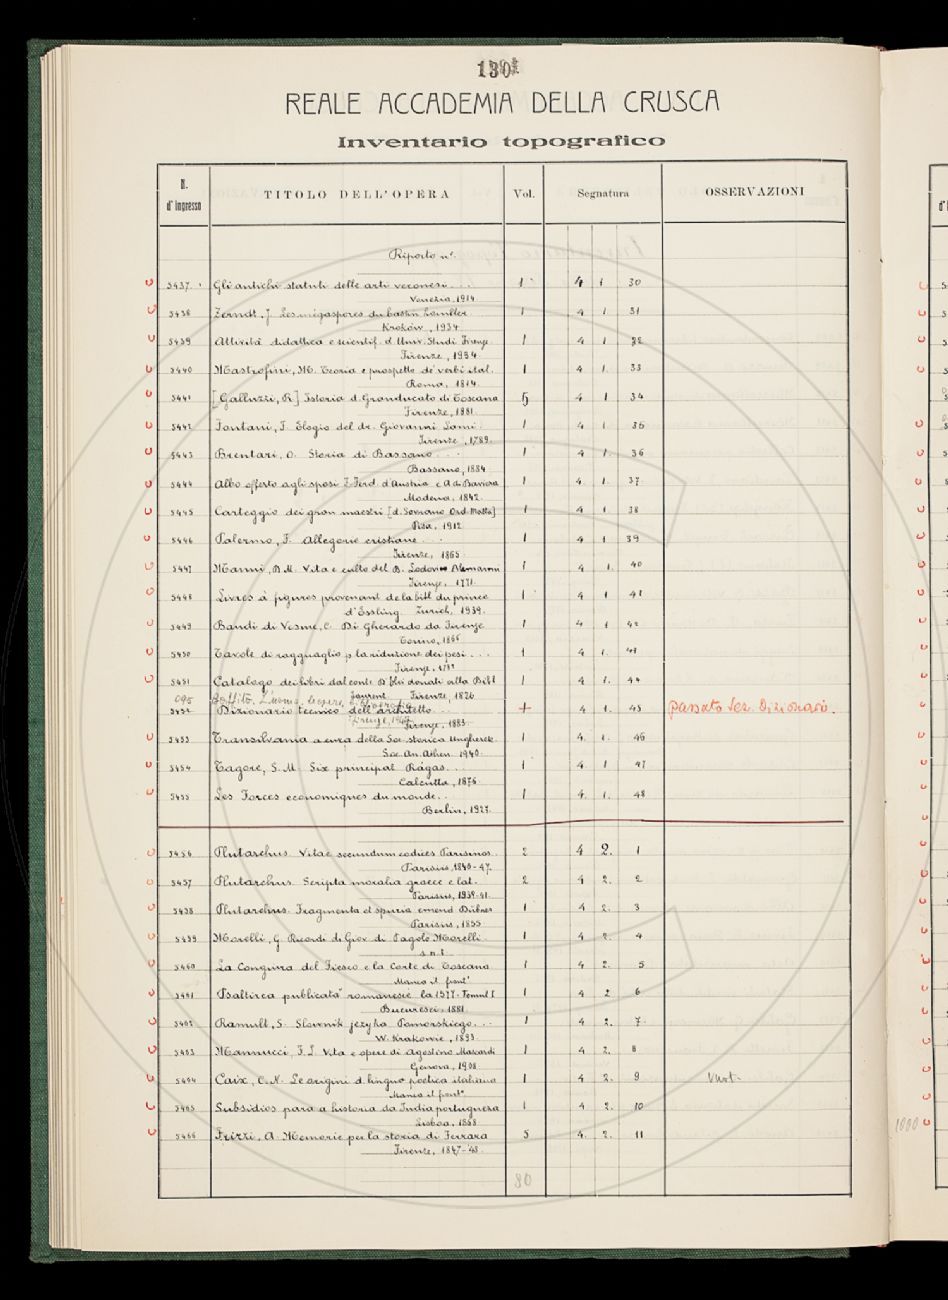 130
REALE ACCADEMIA DELLA CRUSCA
Inventario topografico
N. d'Ingresso TITOLO DELL'OPERA Vol. Segnatura OSSERVAZIONI
Riporto n°.
5437 Gli antichi statuti delle arti veronesi... 1 4 1 30
Venezia, 1914
5438 Zerndt, J. Les mégaspores du bassin houiller 1 4 1 31
Kraków, 1934
5439 Attività didattica e scientif. d. Univ. Studi Firenze 1 4 1 32
Firenze, 1934
5440 Mastrofini, M. Teoria e prospetto de' verbi ital. 1 4 1. 33
Roma, 1814.
5441 [Galluzzi, R.] Istoria d. Granducato di Toscana 5 4 1 34
Firenze, 1881.
5442 Fontani, F. Elogio del dr. Giovanni Lami. 1 4 1 35
Firenze, 1789.
5443 Brentari, O. Storia di Bassano... 1 4 1. 36
Bassano, 1884
5444 Albo offerto agli sposi F. Ferd. d'Austria e A. di Baviera 1 4 1. 37.
Modena, 1842.
5445 Carteggio dei gran maestri [d. Sovrano Ord. Malta] 1 4 1 38
Pisa, 1912
5446 Palermo, F. Allegorie cristiane... 1 4 1 39
Firenze, 1865
5447 Manni, D. M. Vita e culto del B. Lodovico Alemanni 1 4 1. 40
Firenze, 1771.
5448 Livres à figures provenant de la bibl. du prince 1 4 1 41
d'Essling. Zurich, 1939.
5449 Baudi di Vesme, C. Di Gherardo da Firenze 1 4 1 42
Torino, 1866
5450 Tavole di ragguaglio p. la riduzione dei pesi... 1 4 1. 43
Firenze, 1782
5451 Catalogo dei libri dal conte B. donati alla Bibl. 1 4 1. 44
Laurenz. Firenze, 1826
095 Boffito, L'uomo, le opere,
5452 Dizionario tecnico dell'architetto... + 4 1. 45 passato Sez. Dizionario.
Firenze, 1883
5453 Transilvania a cura della Soc. storica ungherese 1 4. 1. 46
Soc. An. Athen. 1940.
5454 Tagore, S. M. Six principal Rágas... 1 4 1 47
Calcutta, 1876.
5455 Les Forces economiques du monde... 1 4. 1. 48
Berlin, 1927.
5456 Plutarchus. Vitae secundum codices Parisinos. 2 4 2. 1
Parisiis, 1846-47.
5457 Plutarchus. Scripta moralia graece e lat. 2 4 2. 2
Parisiis, 1839-41.
5458 Plutarchus. Fragmenta et spuria emend. Dübner 1 4 2. 3
Parisiis, 1855
5459 Morelli, G. Ricordi di Giov. di Pagolo Morelli. 1 4 2. 4
s.n.t.
5460 La Congiura del Fiesco e la Corte di Toscana 1 4 2. 5
Manca il front°
5461 Psaltirea publicată romanesce la 1577. Tomul I 1 4 2 6
Bucuresci, 1881.
5462 Ramułt, S. Słownik jezyka Pomorskiego... 1 4 2. 7.
W. Krakowie, 1893.
5463 Mannucci, F. L. Vita e opere di Agostino Mascardi 1 4 2. 8
Genova, 1908
5464 Caix, C. N. Le origini d. lingua poetica italiana 1 4 2. 9
Manca il front°
5465 Subsidios para a historia da India portugueza 1 4 2. 10
Lisboa, 1868
5466 Frizzi, A. Memorie per la storia di Ferrara 5 4. 2. 11
Firenze, 1847-48.
80
1000